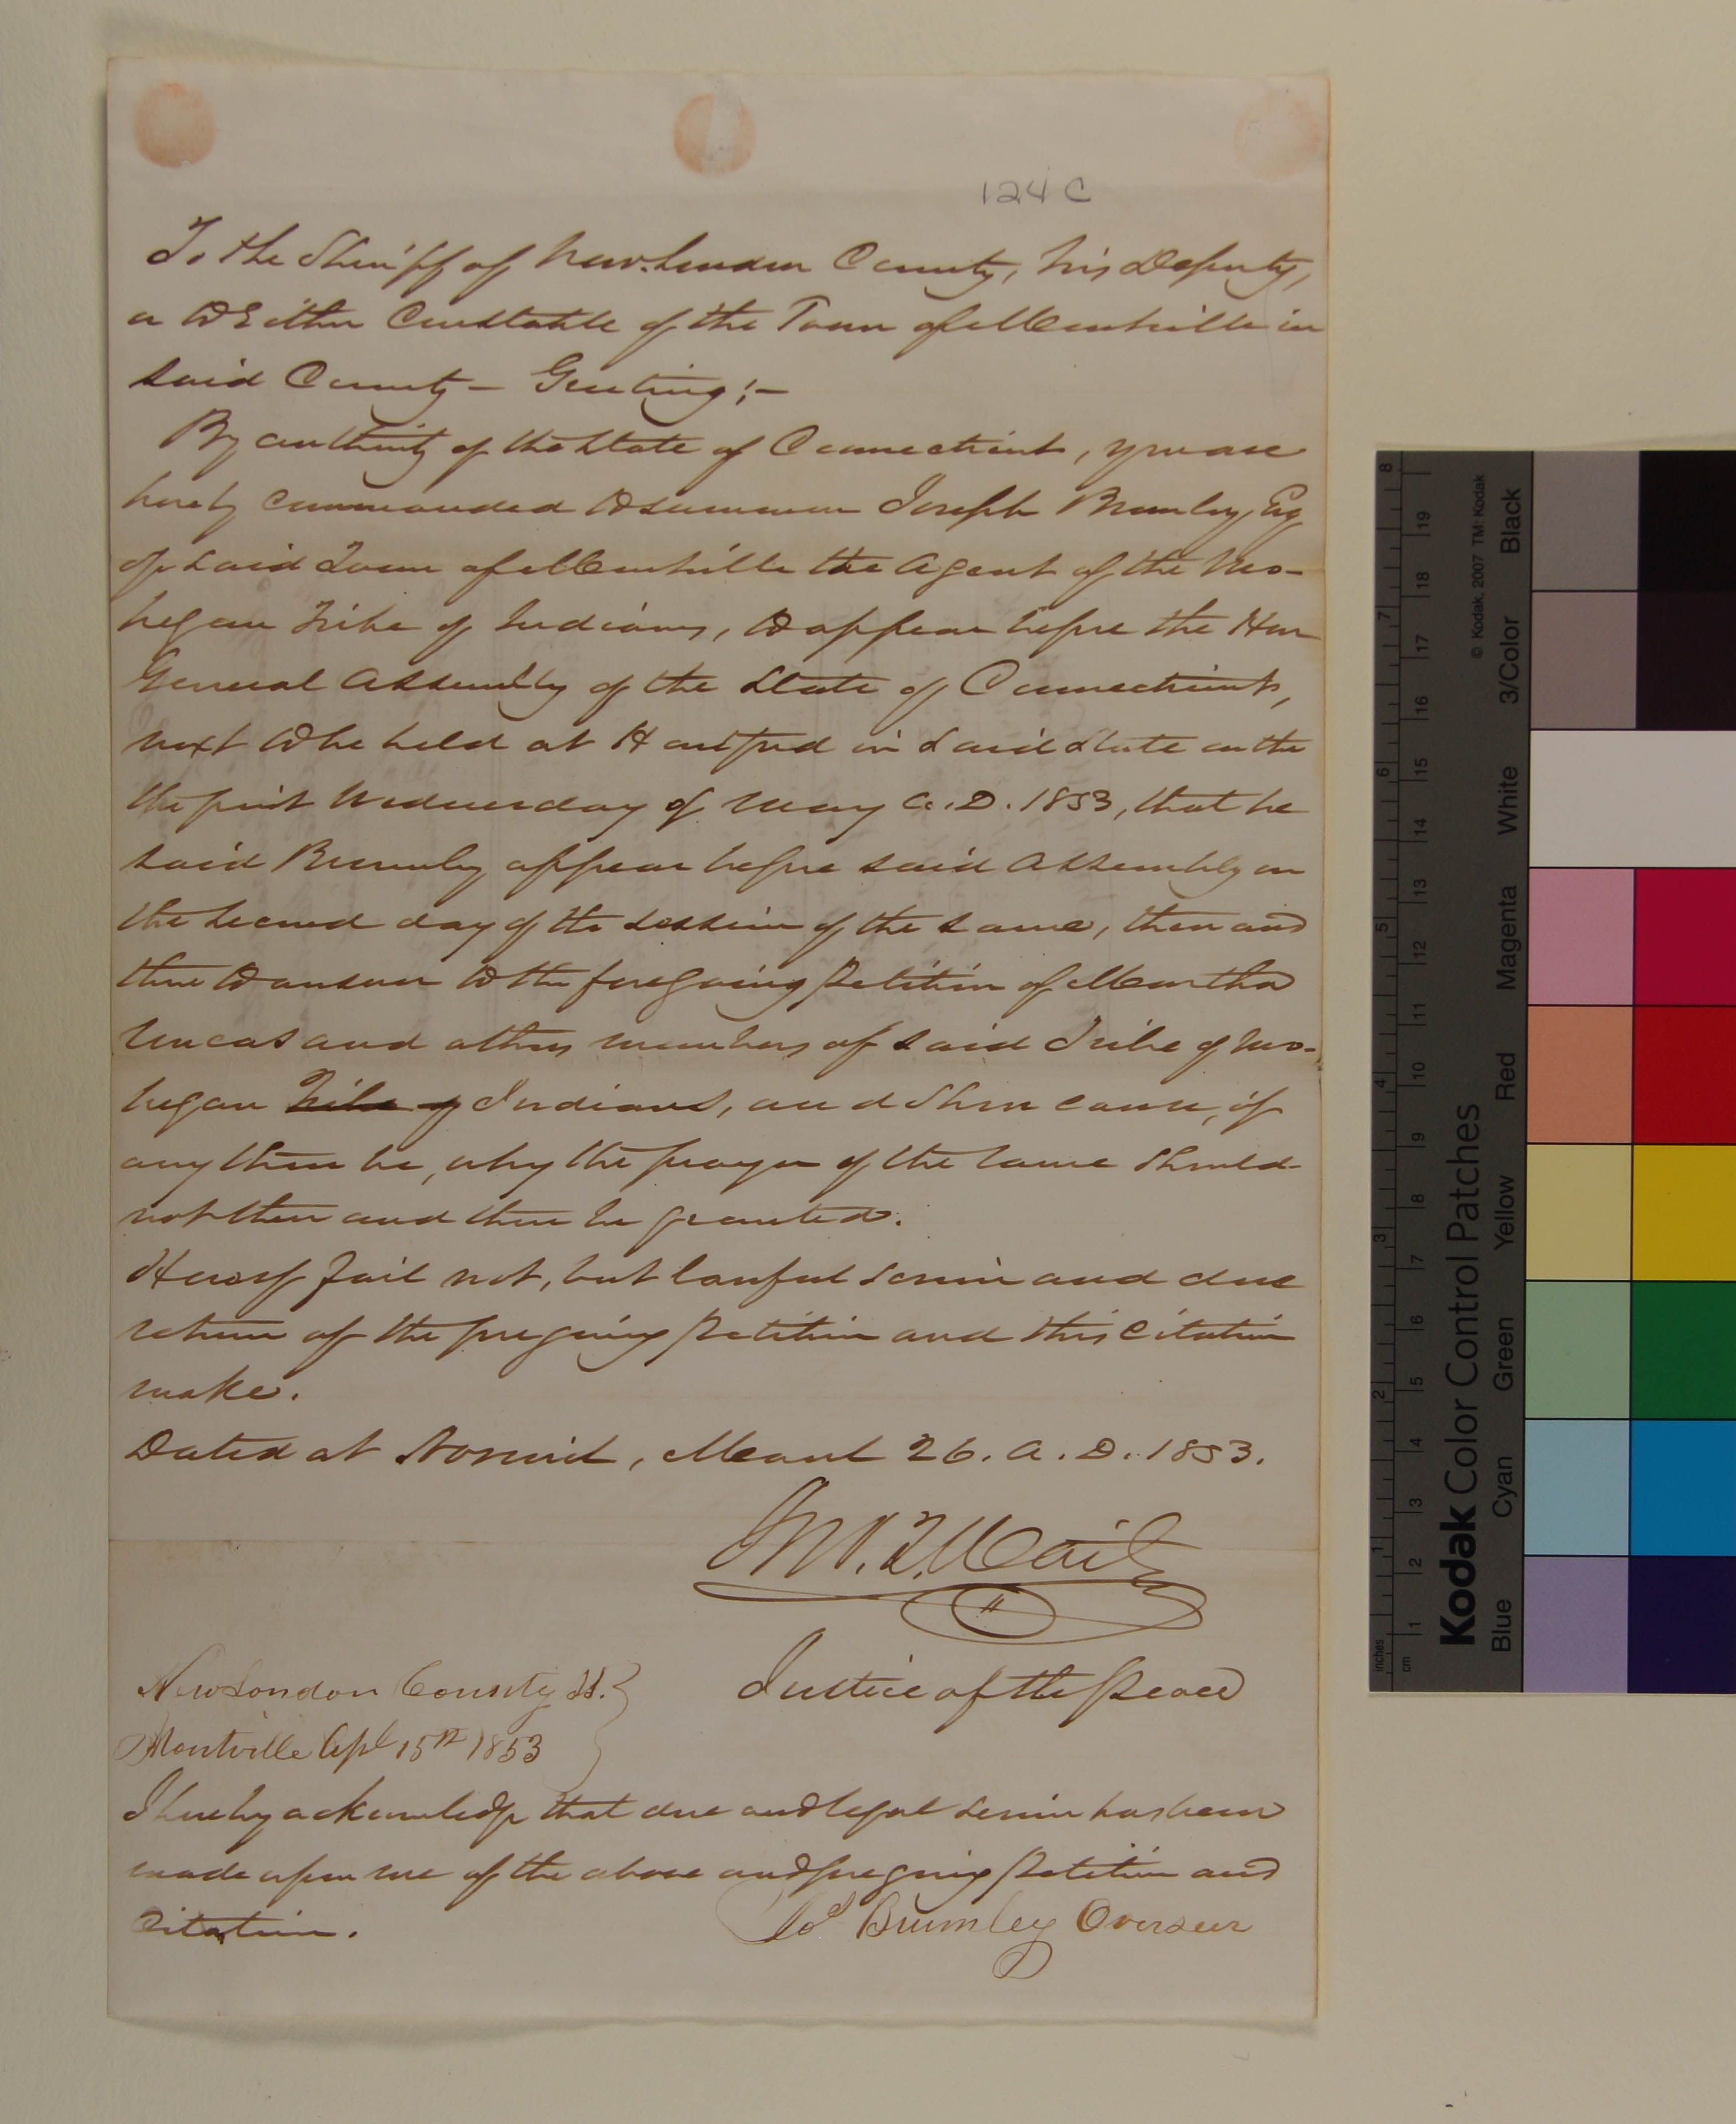 124 C
To the Sheriff of New-London County, his Deputy,
or to Either Constable of the Town of Montville in
said County — Greeting;—
By authority of the State of Connecticut, you are
hereby commanded to summon Joseph Brumley, Esq
of said Town of Montville the Agent of the Mo-
hegan Tribe of Indians, to appear before the Hon
General Assembly of the State of Connecticut,
next to be held at Hartford in said State on the
the first Wednesday of May A.D. 1853, that he
said Brumley appear before said Assembly on
the second day of the session of the same, then and
there to answer to the foregoing petition of Martha
Uncas and others members of said Tribe of Mo-
hegan Tribe of Indians, and show cause, if
any there be, why the prayer of the same should
not then and there be granted.
Hereof fail not, but lawful service and due
return of the foregoing petition and this citation
make.
Dated at Norwich, March 26. A.D. 1853.
Justice of the Peace
New London County SS. }
Montville Apl 15th 1853 }
I hereby acknowledge that due and legal service has been
made upon me of the above and foregoing petition and
Citation.
Jos Brumley Overseer
© Kodak, 2007 TM: Kodak
Kodak Color Control Patches
Blue Cyan Green Yellow Red Magenta White 3/Color Black
inches 1 2 3 4 5 6 7 8
cm 1 2 3 4 5 6 7 8 9 10 11 12 13 14 15 16 17 18 19